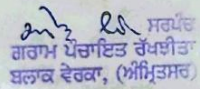 ਸਰਪੰਚ
ਗਰਾਮ ਪੰਚਾਇਤ ਰੱਖਝੀਤਾ
ਬਲਾਕ ਵੇਰਕਾ, (ਅੰਮ੍ਰਿਤਸਰ)